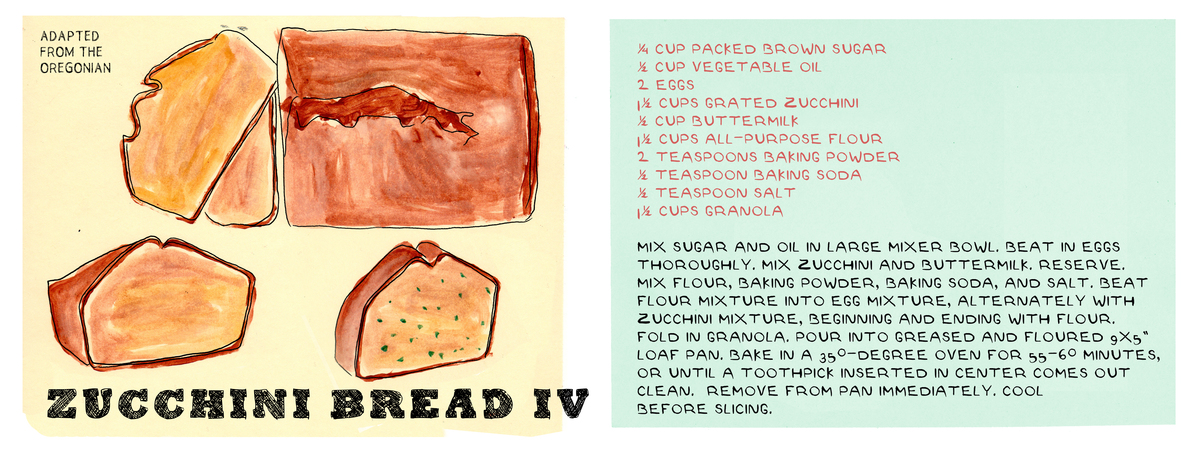 ADAPTED
FROM THE
OREGONIAN
ZUCCHINI BREAD IV
¼ CUP PACKED BROWN SUGAR
½ CUP VEGETABLE OIL
2 EGGS
1½ CUPS GRATED ZUCCHINI
½ CUP BUTTERMILK
1½ CUPS ALL-PURPOSE FLOUR
2 TEASPOONS BAKING POWDER
½ TEASPOON BAKING SODA
½ TEASPOON SALT
1½ CUPS GRANOLA
MIX SUGAR AND OIL IN LARGE MIXER BOWL. BEAT IN EGGS
THOROUGHLY. MIX ZUCCHINI AND BUTTERMILK. RESERVE.
MIX FLOUR, BAKING POWDER, BAKING SODA, AND SALT. BEAT
FLOUR MIXTURE INTO EGG MIXTURE, ALTERNATELY WITH
ZUCCHINI MIXTURE, BEGINNING AND ENDING WITH FLOUR.
FOLD IN GRANOLA. POUR INTO GREASED AND FLOURED 9X5"
LOAF PAN. BAKE IN A 350-DEGREE OVEN FOR 55-60 MINUTES,
OR UNTIL A TOOTHPICK INSERTED IN CENTER COMES OUT
CLEAN. REMOVE FROM PAN IMMEDIATELY. COOL
BEFORE SLICING.